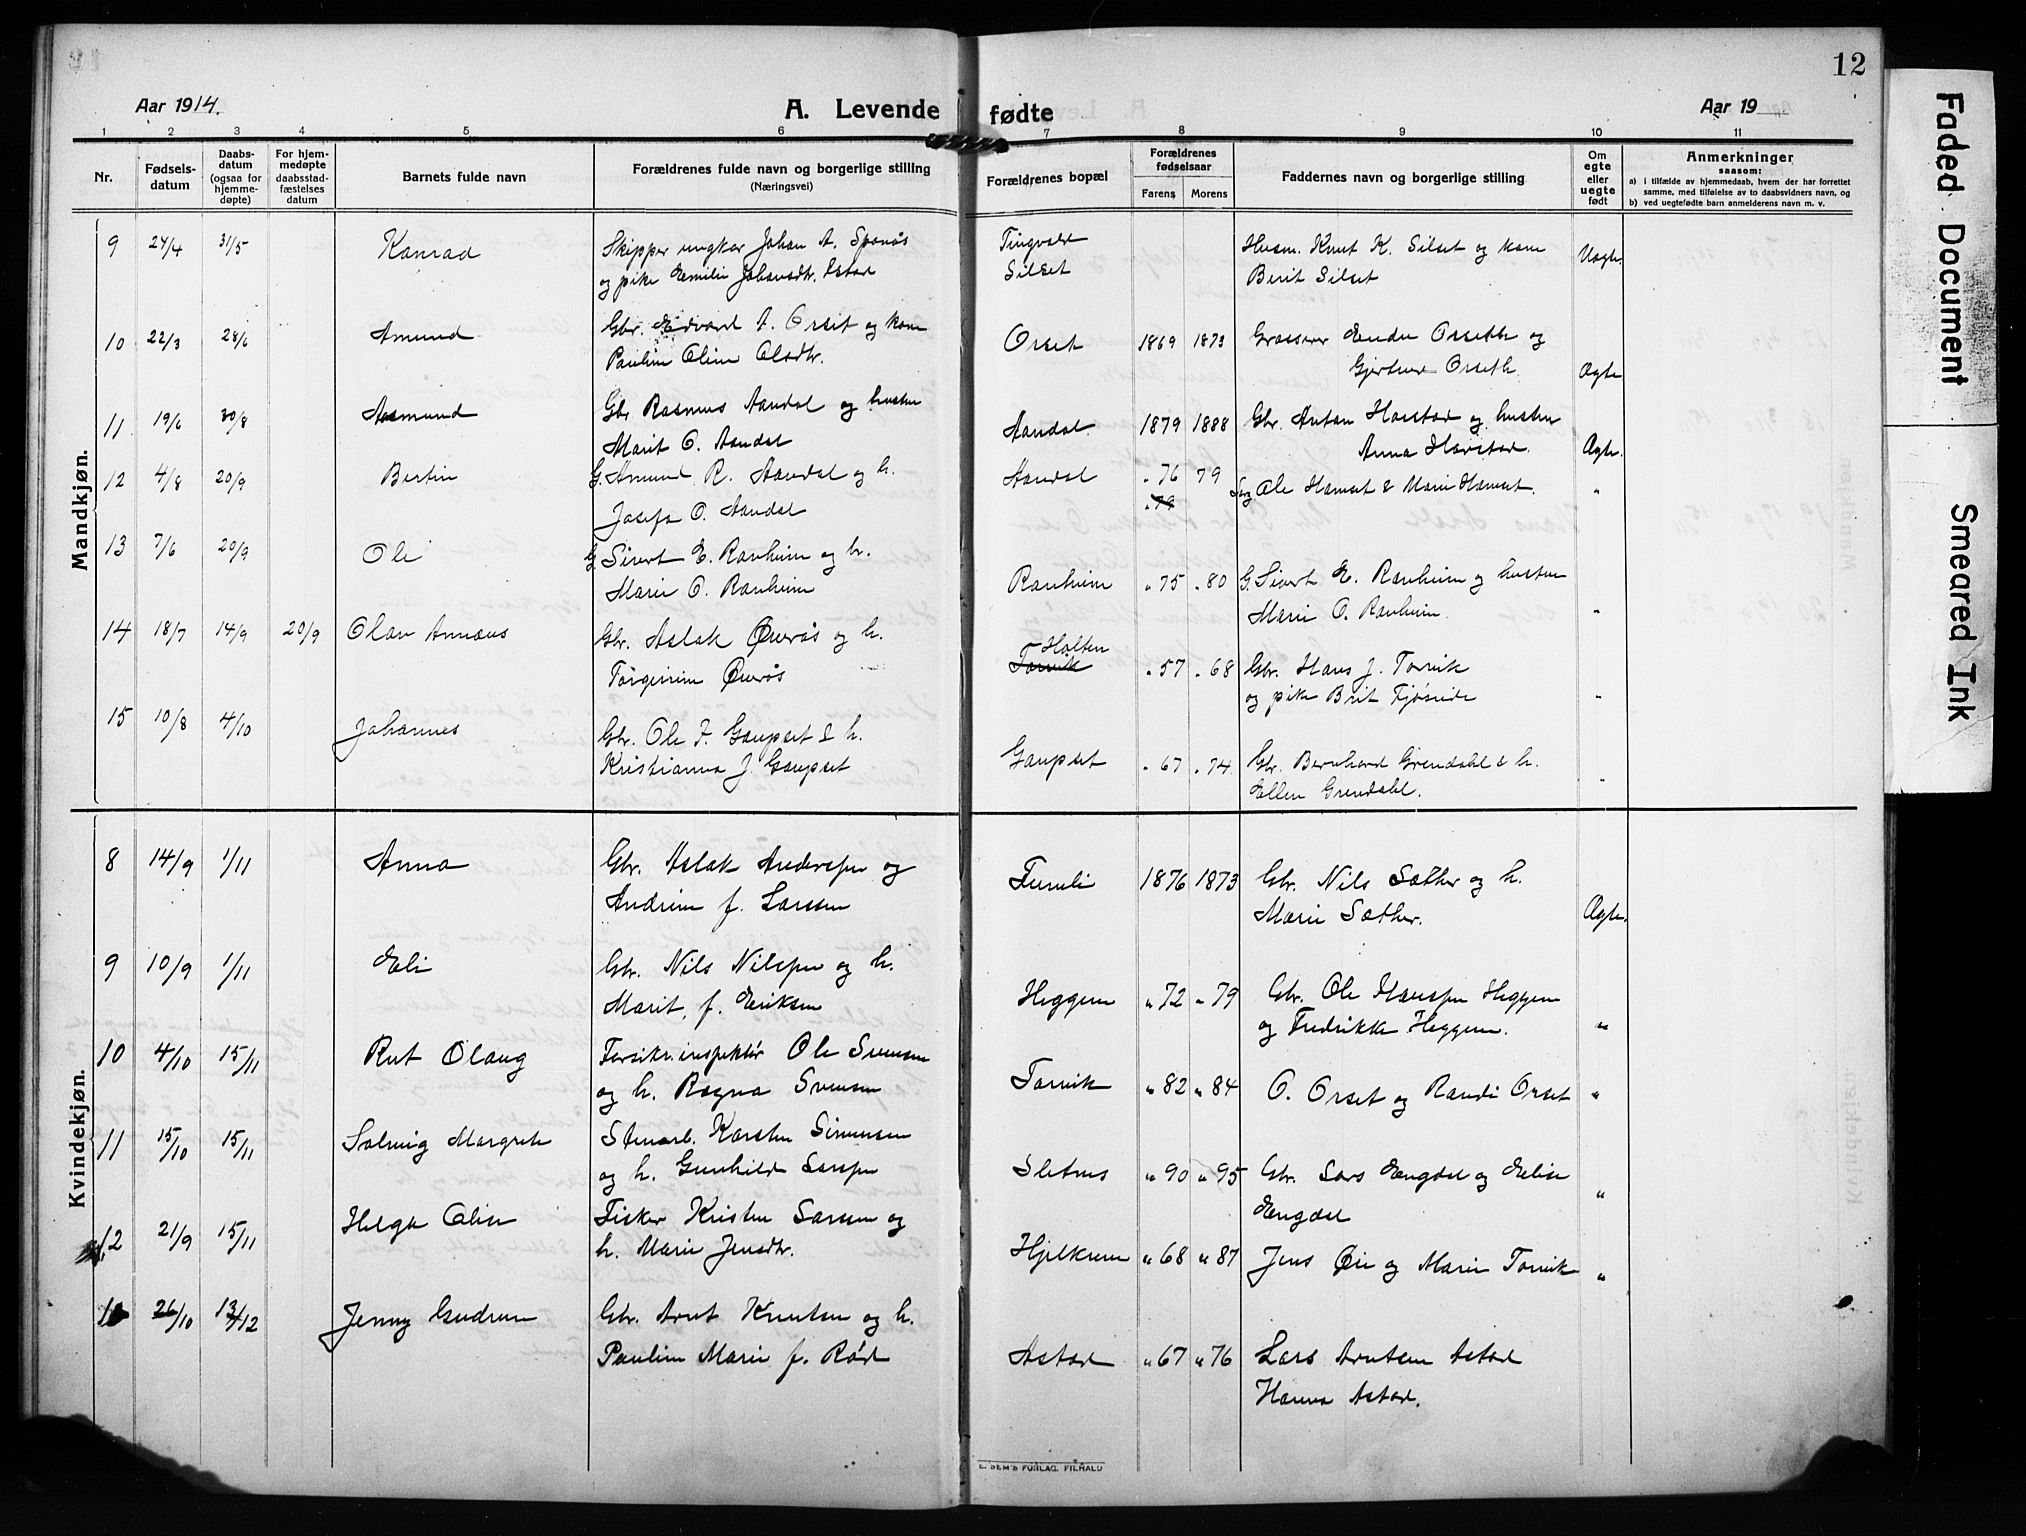 12
Aar 1914.
A. Levende fødte
Aar 19
1 2 3 4 5 6 7 8 9 10 11
Nr.
Fødsels-
datum
Daabs-
datum
(ogsaa for
hjemme-
døpte)
For hjem-
medøpte
daabsstad-
fæstelses
datum
Barnets fulde navn
Forældrenes fulde navn og borgerlige stilling
(Næringsvei)
Forældrenes bopæl
Forældrenes
fødselsaar
Farens Morens
Faddernes navn og borgerlige stilling
Om
egte
eller
uegte
født
Anmerkninger
saasom:
a) i tilfælde av hjemmedaab, hvem der har forrettet
samme, med tilføielse av to daabsvidners navn, og
b) ved uegtefødte barn anmelderens navn m. v.
Mandkjøn.
9 24/4 31/5 Konrad Skipper ungkar Johan A. Tingvold Husm. Knut K. Silset og kone Uægte.
og pike Emilie Johansdtr. Silset Berit Silset
10 22/3 28/6 Amund Gbr. Edvard A. Orset og kone Orset 1869 1873 Grosserer Endre Orseth og
Pauline Oline Olsdtr. Orseth. Ægte
11 19/6 30/8 Asmund Gbr Rasmus Aandal og hustru Aandal. 1879 1888 Gbr. Anton Harstad og hustru
Marit O. Aandal Anna Harstad. Ægte.
12 4/8 20/9 Bertin G. Amund R. Aandal og h. Aandal " 76 79 Ole Hamset & Marie Hamset. "
Josefa O. Aandal " 79
13 7/6 20/9 Ole G. Sivert E. Ranheim og h. Ranheim " 75 " 80 G. Sivert E. Ranheim og hustru
Marie O. Ranheim Marie O. Ranheim. "
14 18/7 14/9 20/9 Olav Annæus Gbr. Aslak Øverås og h. Holten
Torvik " 57 " 68 Gbr. Hans J. Torvik
Øverås og pike Brit "
15 10/8 4/10 Johannes Gbr. Ole J. Gaupset & h. Gaupset " 67 " 74. Gbr. Bernhard Grendahl & h.
Kristianna J. Gaupset Ellen Grendahl. "
Kvindekjøn.
8 14/9 1/11 Anna Gbr. Aslak Andersen og 1876 1873 Gbr. Nils Sæther og h.
Andrine f. Larssen Marie Sæther. Ægte.
9 10/9 1/11 Eli Gbr. Nils Nilssen og h. Heggem " 72 " 79 Gbr. Ole Hanssen Heggem
Marit, f. Eriksen og Fredrikke Heggem. "
10 4/10 15/11 Rut Olaug Forsikr.inspektør Ole Svensen Torvik " 82 " 84 O. Orset og Randi Orset "
og h. Ragna Svensen
11 15/10 15/11 Solveig Margrete Stenarb. Karsten Simensen Sletnes " 90 " 95 Gbr. Lars Engdal og Elise
og h. Gunhild Larssen Engdal "
12 21/9 15/11 Helga Olise Fisker Kristen Larsen og Hjelkrem " 68 " 87 Jens Øie og Marie Torvik "
h. Marie Jensdtr.
26/10 13/12 Jenny Gudrun Gbr. Arnt Knutsen og h. Astad " 67 " 76 Lars Arntsen Astad
Pauline Marie f. Rød Hanna Astad.
E. SEM'S FORLAG. FR.HALD
Faded Document
Smeared Ink